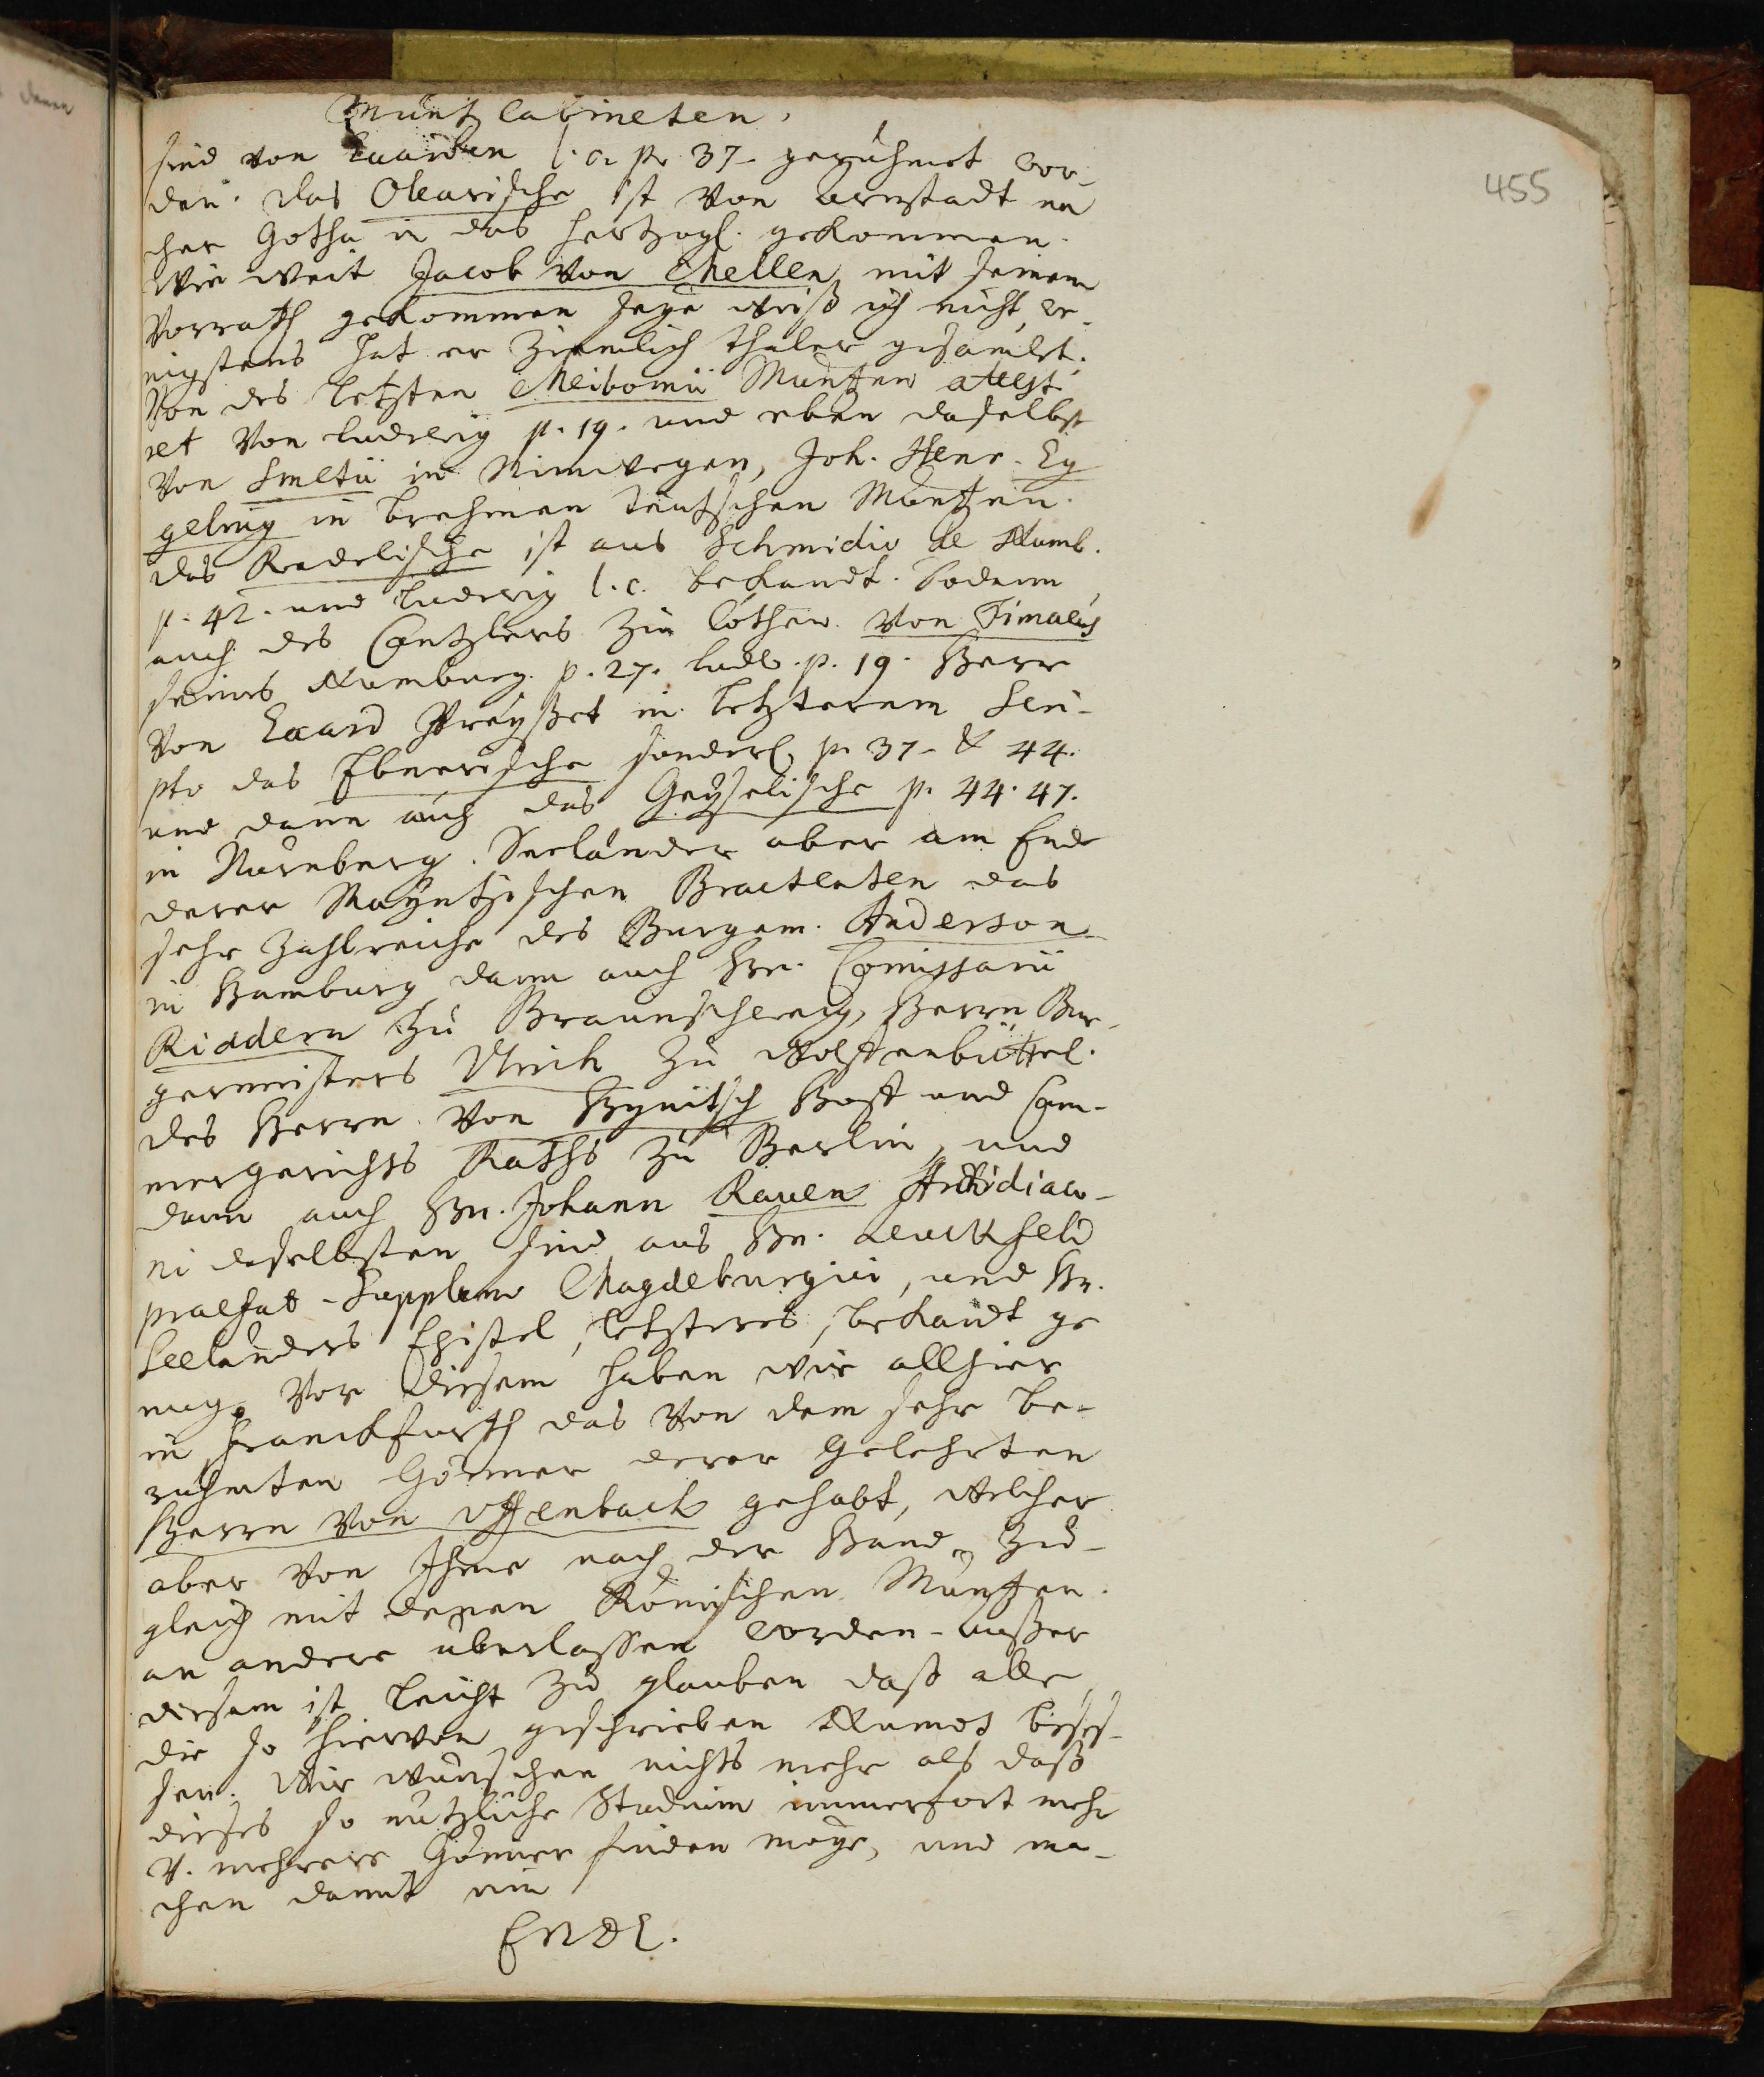 Müntz Cabineten.
455
sind von Eccarden l. c. p. 37. gerühmet wor-
den. das Olearische ist von Arnstadt na
cher Gotha in das Hertzogl. gekommen.
Wie weit Jacob von Mellen mit seinem
Vorrath gekommen seye weiß ich nicht, we-
nigstens hat er ziemlich thaler gesamlet.
Von des letzten Meibomii Müntzen attesti
ret von Ludewig p. 19. und eben daselbst
von Smetii in Nimwegen, Joh. Henr. Eg
geling in Brehmen teutschen Müntzen.
das Redelische ist aus Schmidio de Numb.
p. 42. und Ludewig l. c. bekandt. Sodann
auch des Cantzlers zu Cöthen von Timaeus
seines Numburg. p. 27. Ludw. p. 19. Herr
von Eccard preyßet in letzterem Scri-
pto das Ebnerische sonderl. p. 37. & 44.
und dann auch das Geyselische p. 44. 47.
in Nürnberg. Seeländer aber am Ende
derer Mayntzischen Bracteaten das
sehr zahlreiche des Burgem. Anderson
in Hamburg dann auch Hr. Comissarii
Riddern zu Braunschweig, Herrn Bur-
germeisters Ulrich zu Wolffenbüttel.
des Herrn von Hynitsch Hoff und Cam-
mergerichts Raths zu Berlin, und
dann auch Hn. Johann Raven Archidiaco-
ni daselbsten sind aus Hn. Leuckfeld
praefat. Supplem Magdeburgici, und Hr.
Seeländers Epistel, letzteres, bekandt ge
nug. Vor diesem haben wir allhier
in Franckfurth das von dem sehr be-
rühmten Gönner derer Gelehrten
Herrn von Uffenbach gehabt, welches
aber von Ihme nach der Hand, zu-
gleich mit denen Römischen Müntzen
an andere überlassen worden. Außer
diesem ist leicht zu glauben daß alle
die so hiervon geschrieben Numos beses-
sen. Wir wünschen nichts mehr als daß
dieses so nützliche Studium immerfort mehr
u. mehrere Gönner finden möge, und ma-
chen damit ein
ENDE.